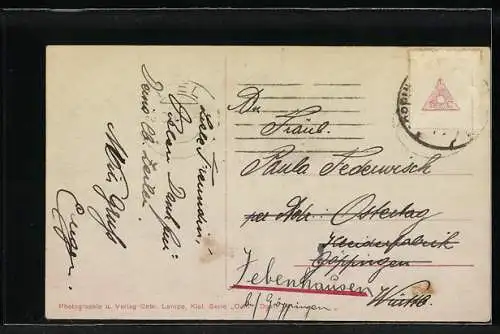 Liebe Freundin,
Vielen Dank für
Deine lb. Zeilen.
Mit Gruß
Eugen.
An
Fräul.
Paula Federwisch
per Adr. Ostertag
Kleiderfabrik
Göppingen
Jebenhausen
b/ Göppingen
Württb.
Photographie u. Verlag Gebr. Lempe, Kiel. Serie